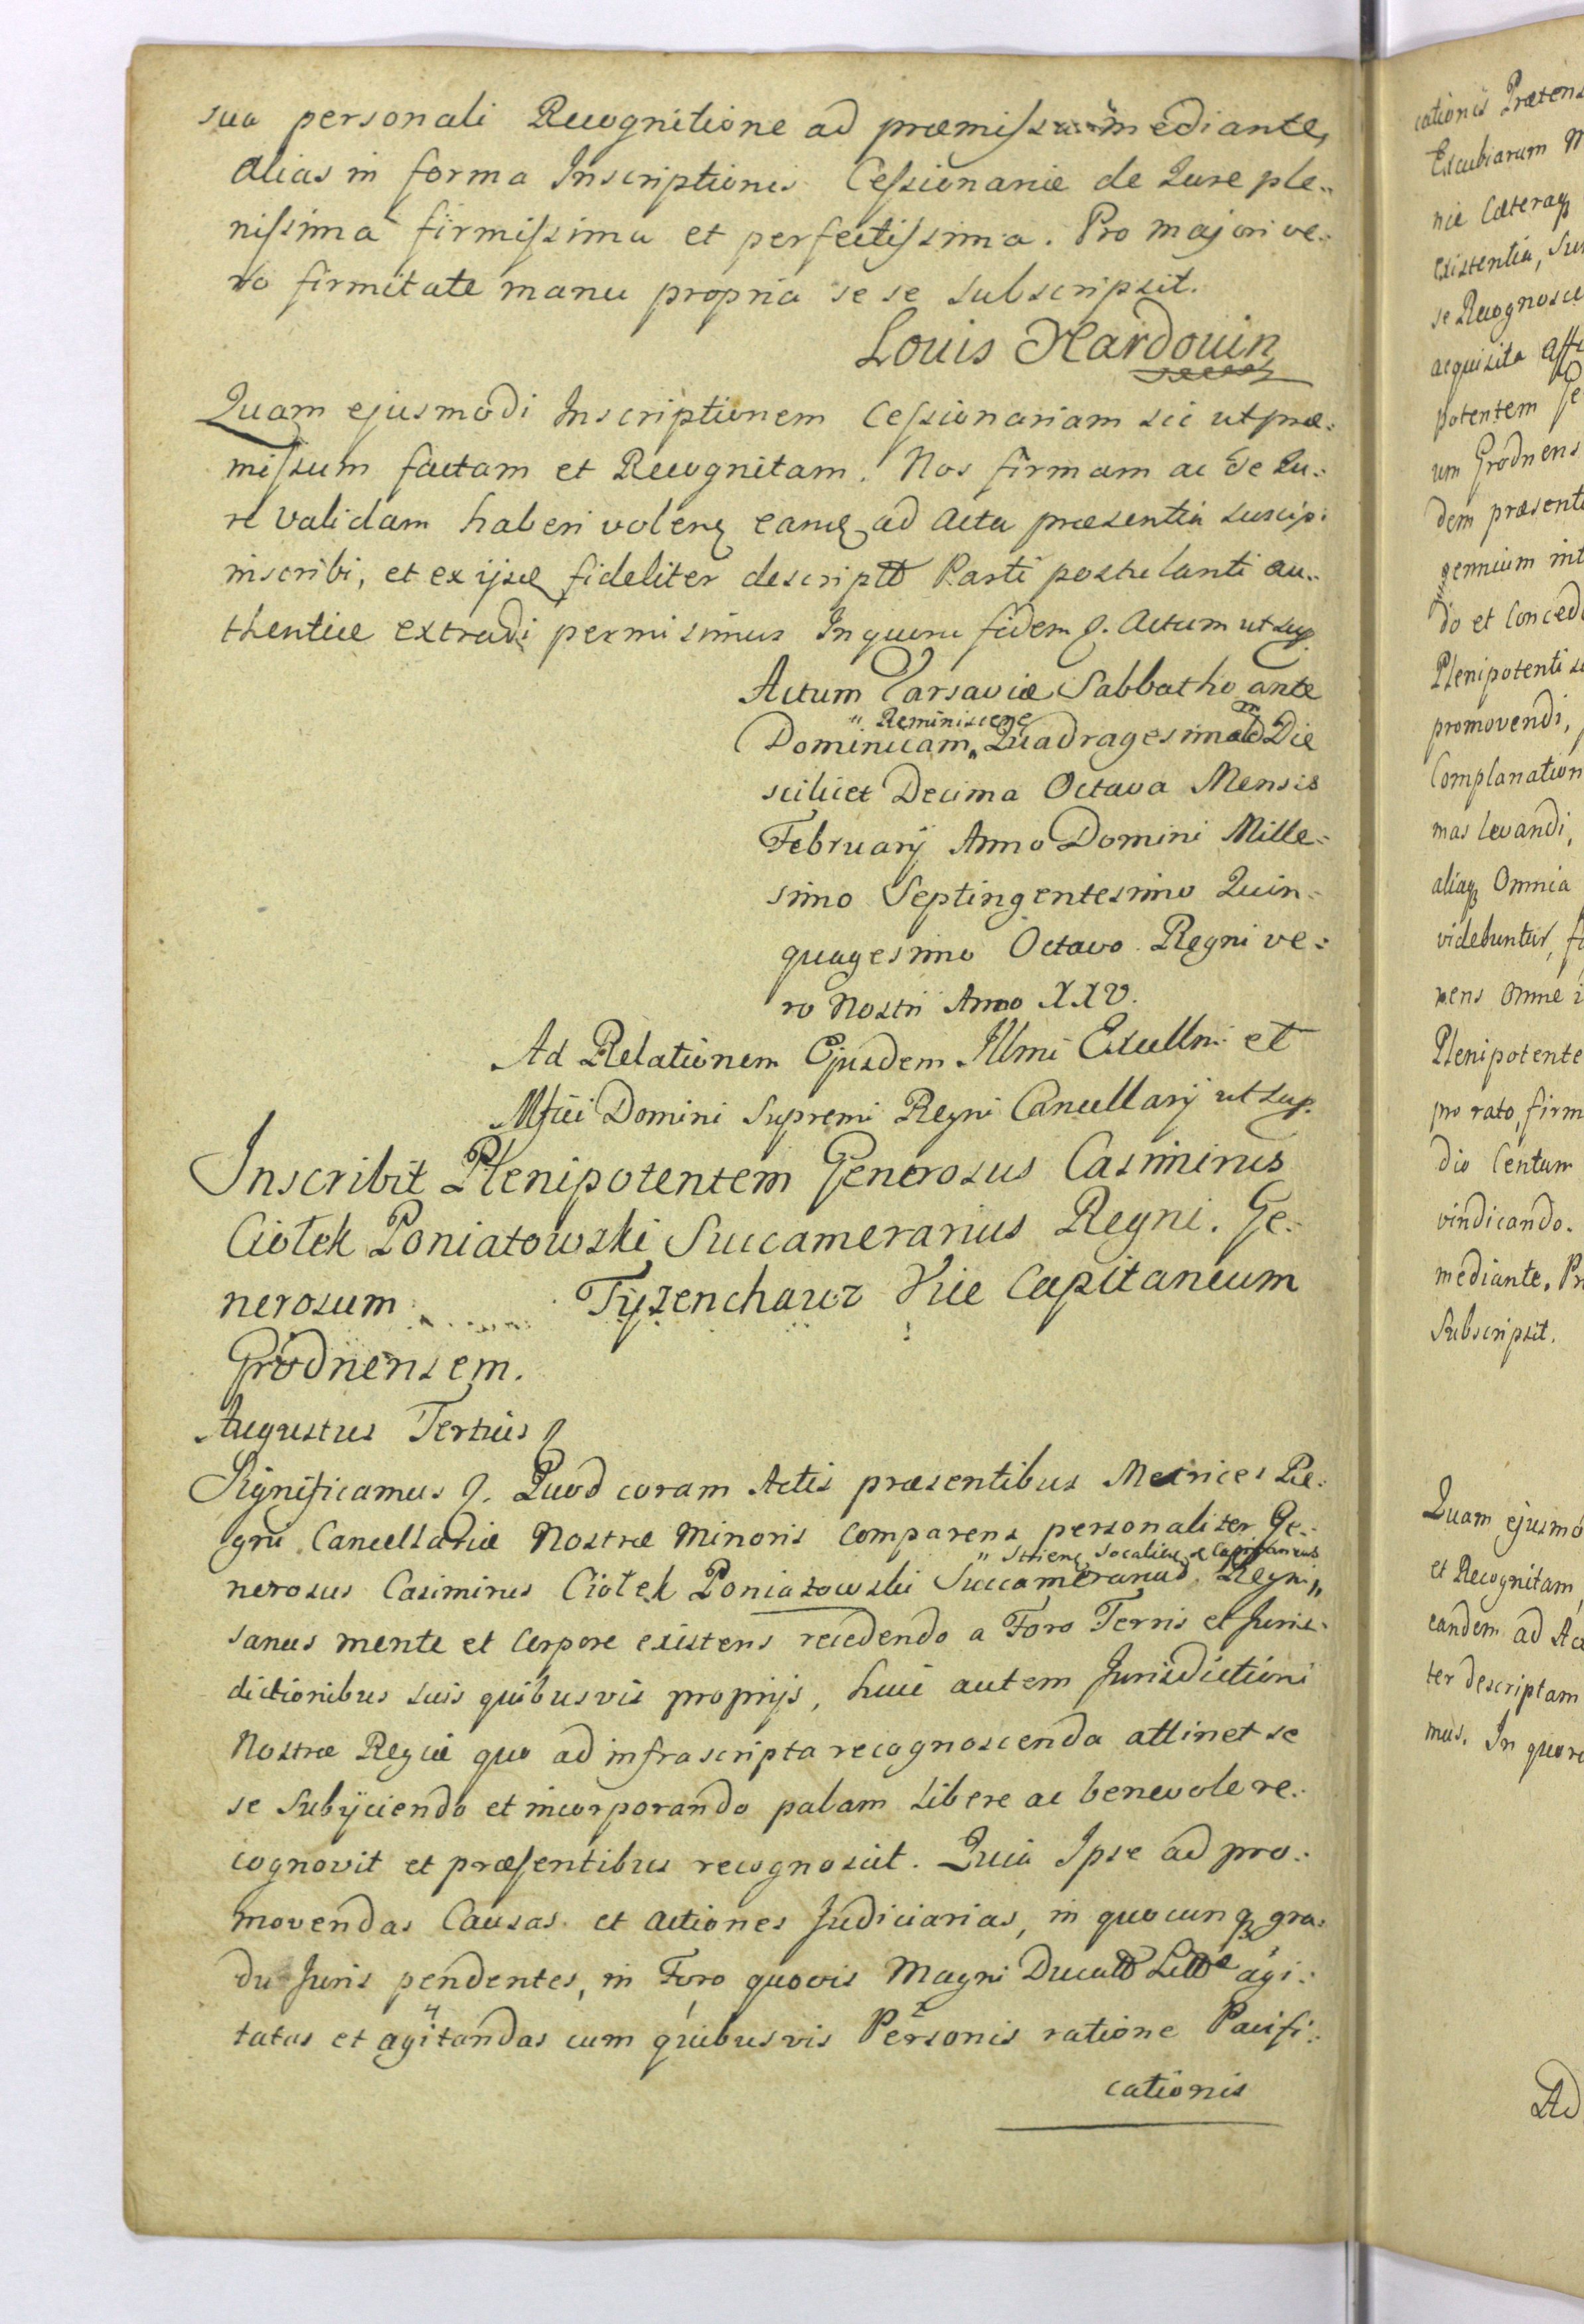 sua personali Recognitione ad præmissa mediante,
alias in forma Inscriptionis Cessionariæ de Jure ple-
nissima firmissima et perfectissima. Pro majori ve-
ro firmitate manu propria se se subscripsit.
Louis Hardouin
Quam ejusmodi Inscriptionem Cessionariam sic ut præ-
missum factam et Recognitam. Nos firmam ac de Ju-
re validam haberi volenq eamq ad Acta præsentia suscip:
inscribi, et ex ijsq fideliter descriptt Parti postulanti au-
thentice extradi permisimus In quoru fidem &. Actum ut sup.
Actum Varsaviæ Sabbatho ante
" Reminiscenq
Dominicam " Quadragesimalem Die
scilicet Decima Octava Mensis
February Anno Domini Mille-
simo Septingentesimo Quin-
quagesimo Octavo Regni ve-
ro Nostri Anno XXV.
Ad Relationem Ejusdem Illmi Excellmi et
Mfici Domini Supremi Regni Cancellarij ut sup.
Inscribit Plenipotentem Generosus Casimirus
Ciołek Poniatowski Succamerarius Regni. Ge-
nerosum ...... Tyzenchauz Vice Capitaneum
Grodnensem.
Augustus Tertius &
Significamus &. Quod coram Actis præsentibus Metrices Re-
gni Cancellariæ Nostræ Minoris comparens personaliter Ge-
" Socaliens Capitaneus
nerosus Casimirus Ciołek Poniatowski Succamerarius Regni "
sanus mente et corpore existens recedendo a Foro Terris et Juris-
dictionibus suis quibusvis proprijs, huic autem Jurisdictioni
Nostræ Regiæ quo ad infrascripta recognoscenda attinet se
se subijciendo et incorporando palam libere ac benevole re-
cognovit et præsentibus recognoscit. Quia Ipse ad pro-
movendas Causas et actiones Judiciarias, in quocunq gra-
du Juris pendentes, in Foro quovis Magni Ducatt Littæ agi-
tatas et agitandas cum quibusvis Personis ratione Pacifi-
cationis
cationis Prætens
Excubiarum M
niæ Cæteraq
existentia, Su
se Recognosce
acquisita Affe
potentem Ge
um Grodnens
dem præsent
gennium int
do et Conced
Plenipotenti s
promovendi,
Complanation
mas levandi,
aliaq Omnia
videbuntur, f
nens Omne i
Plenipotente
pro rato, firm
dio Centum
vindicando.
mediante. Pr
Subscripsit.
Quam ejusmo
et Recognitam
eandem ad Ac
ter descriptam
mus. In quoru
Ad